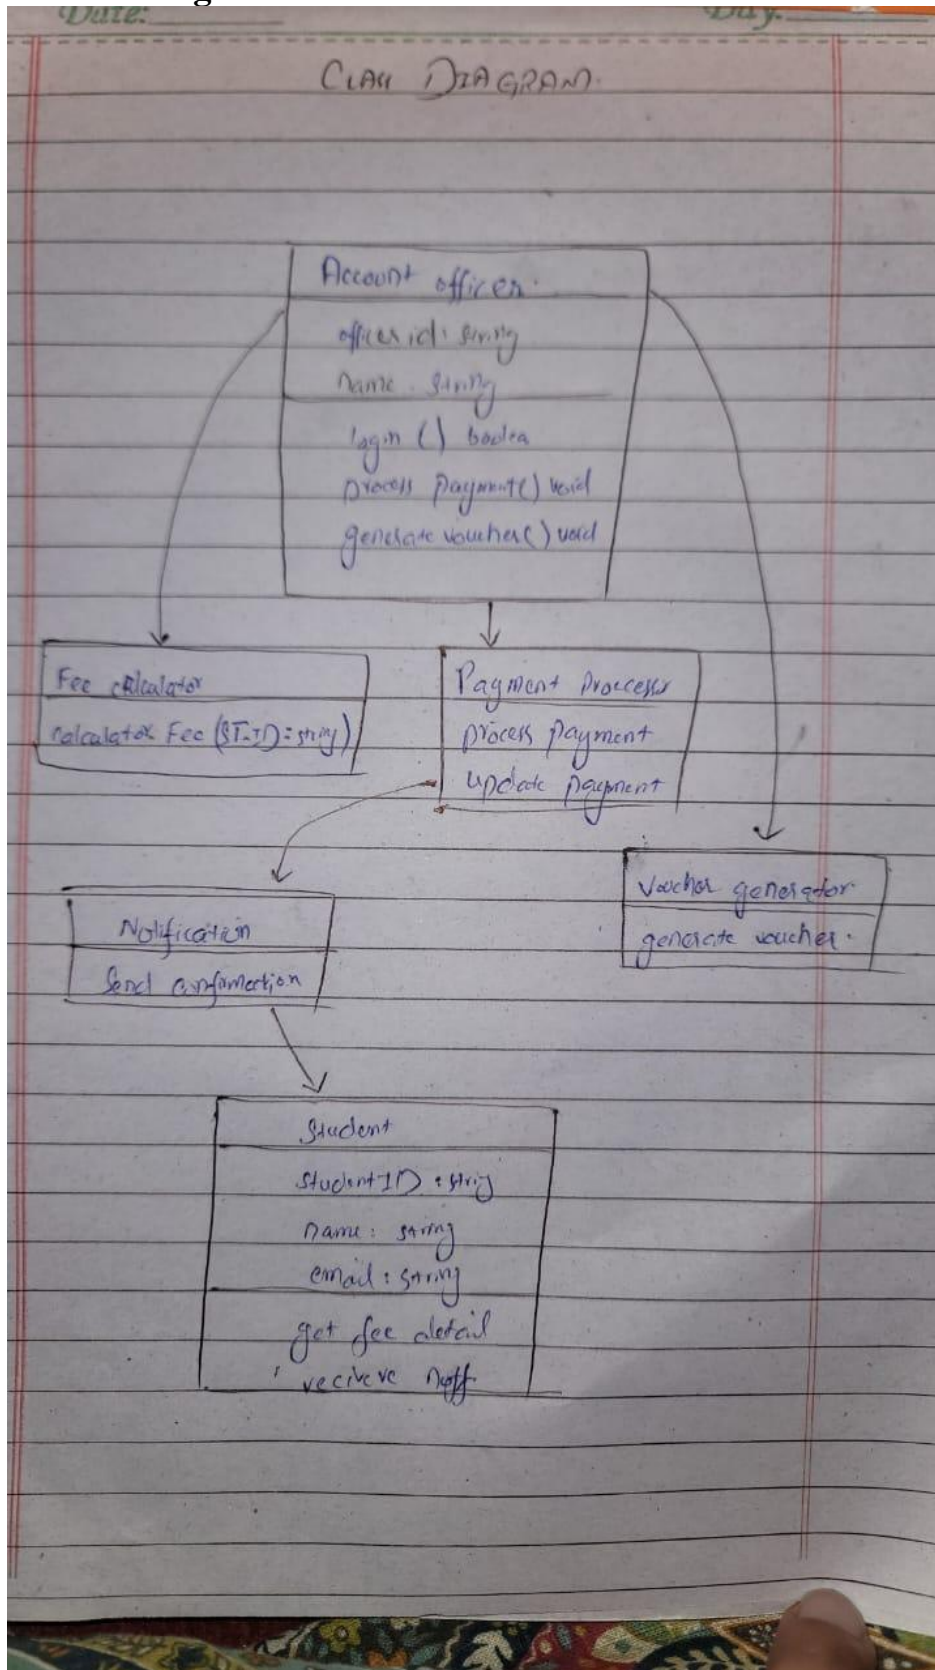 Date:
Day.
CLASS DIAGRAM.
Account officer.
officer id: string
name. string
login () boolea
process payment() void
generate voucher() void
Fee calculator
calculator Fee (ST-ID: string)
Payment Proccessr
process payment
update payment
Voucher generator.
generate voucher.
Notification
Send
Student
StudentID : strig
name: string
email: string
get fee detail
recieve